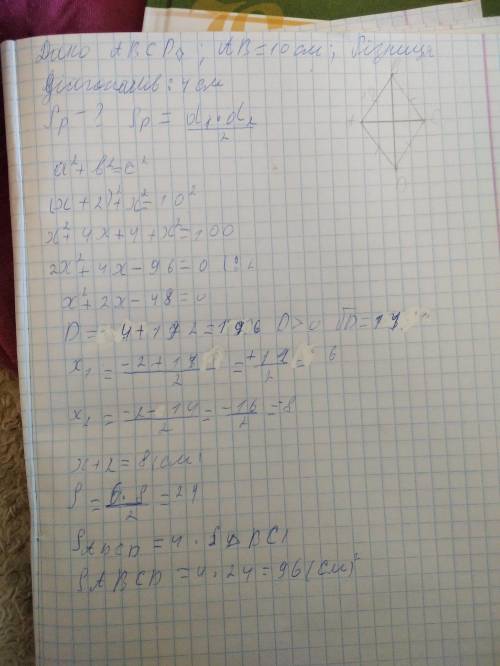 Дано ABCD; AB = 10 см; Різниця
діагоналей: 4 см
Sp - ? Sp = d₁·d₂/2
a² + b² = c²
(x + 2)² + x² = 10²
x² + 4x + 4 + x² = 100
2x² + 4x - 96 = 0 | : 2
x² + 2x - 48 = 0
D = 4 + 192 = 196 D > 0 √D = 14
x₁ = -2 + 14/2 = +12/2 = 6
x₂ = -2 - 14/2 = -16/2 = -8
x + 2 = 8 (см)
S = 6·8/2 = 24
S ABCD = 4 · S△
S ABCD = 4 · 24 = 96 (см)²